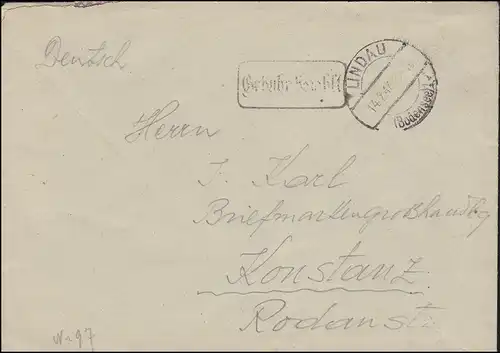 Deutsch
Gebühr bezahlt
LINDAU
(Bodensee)
Herrn
J. Karl
Briefmarkengroßhandlg
Konstanz
Rodanstr